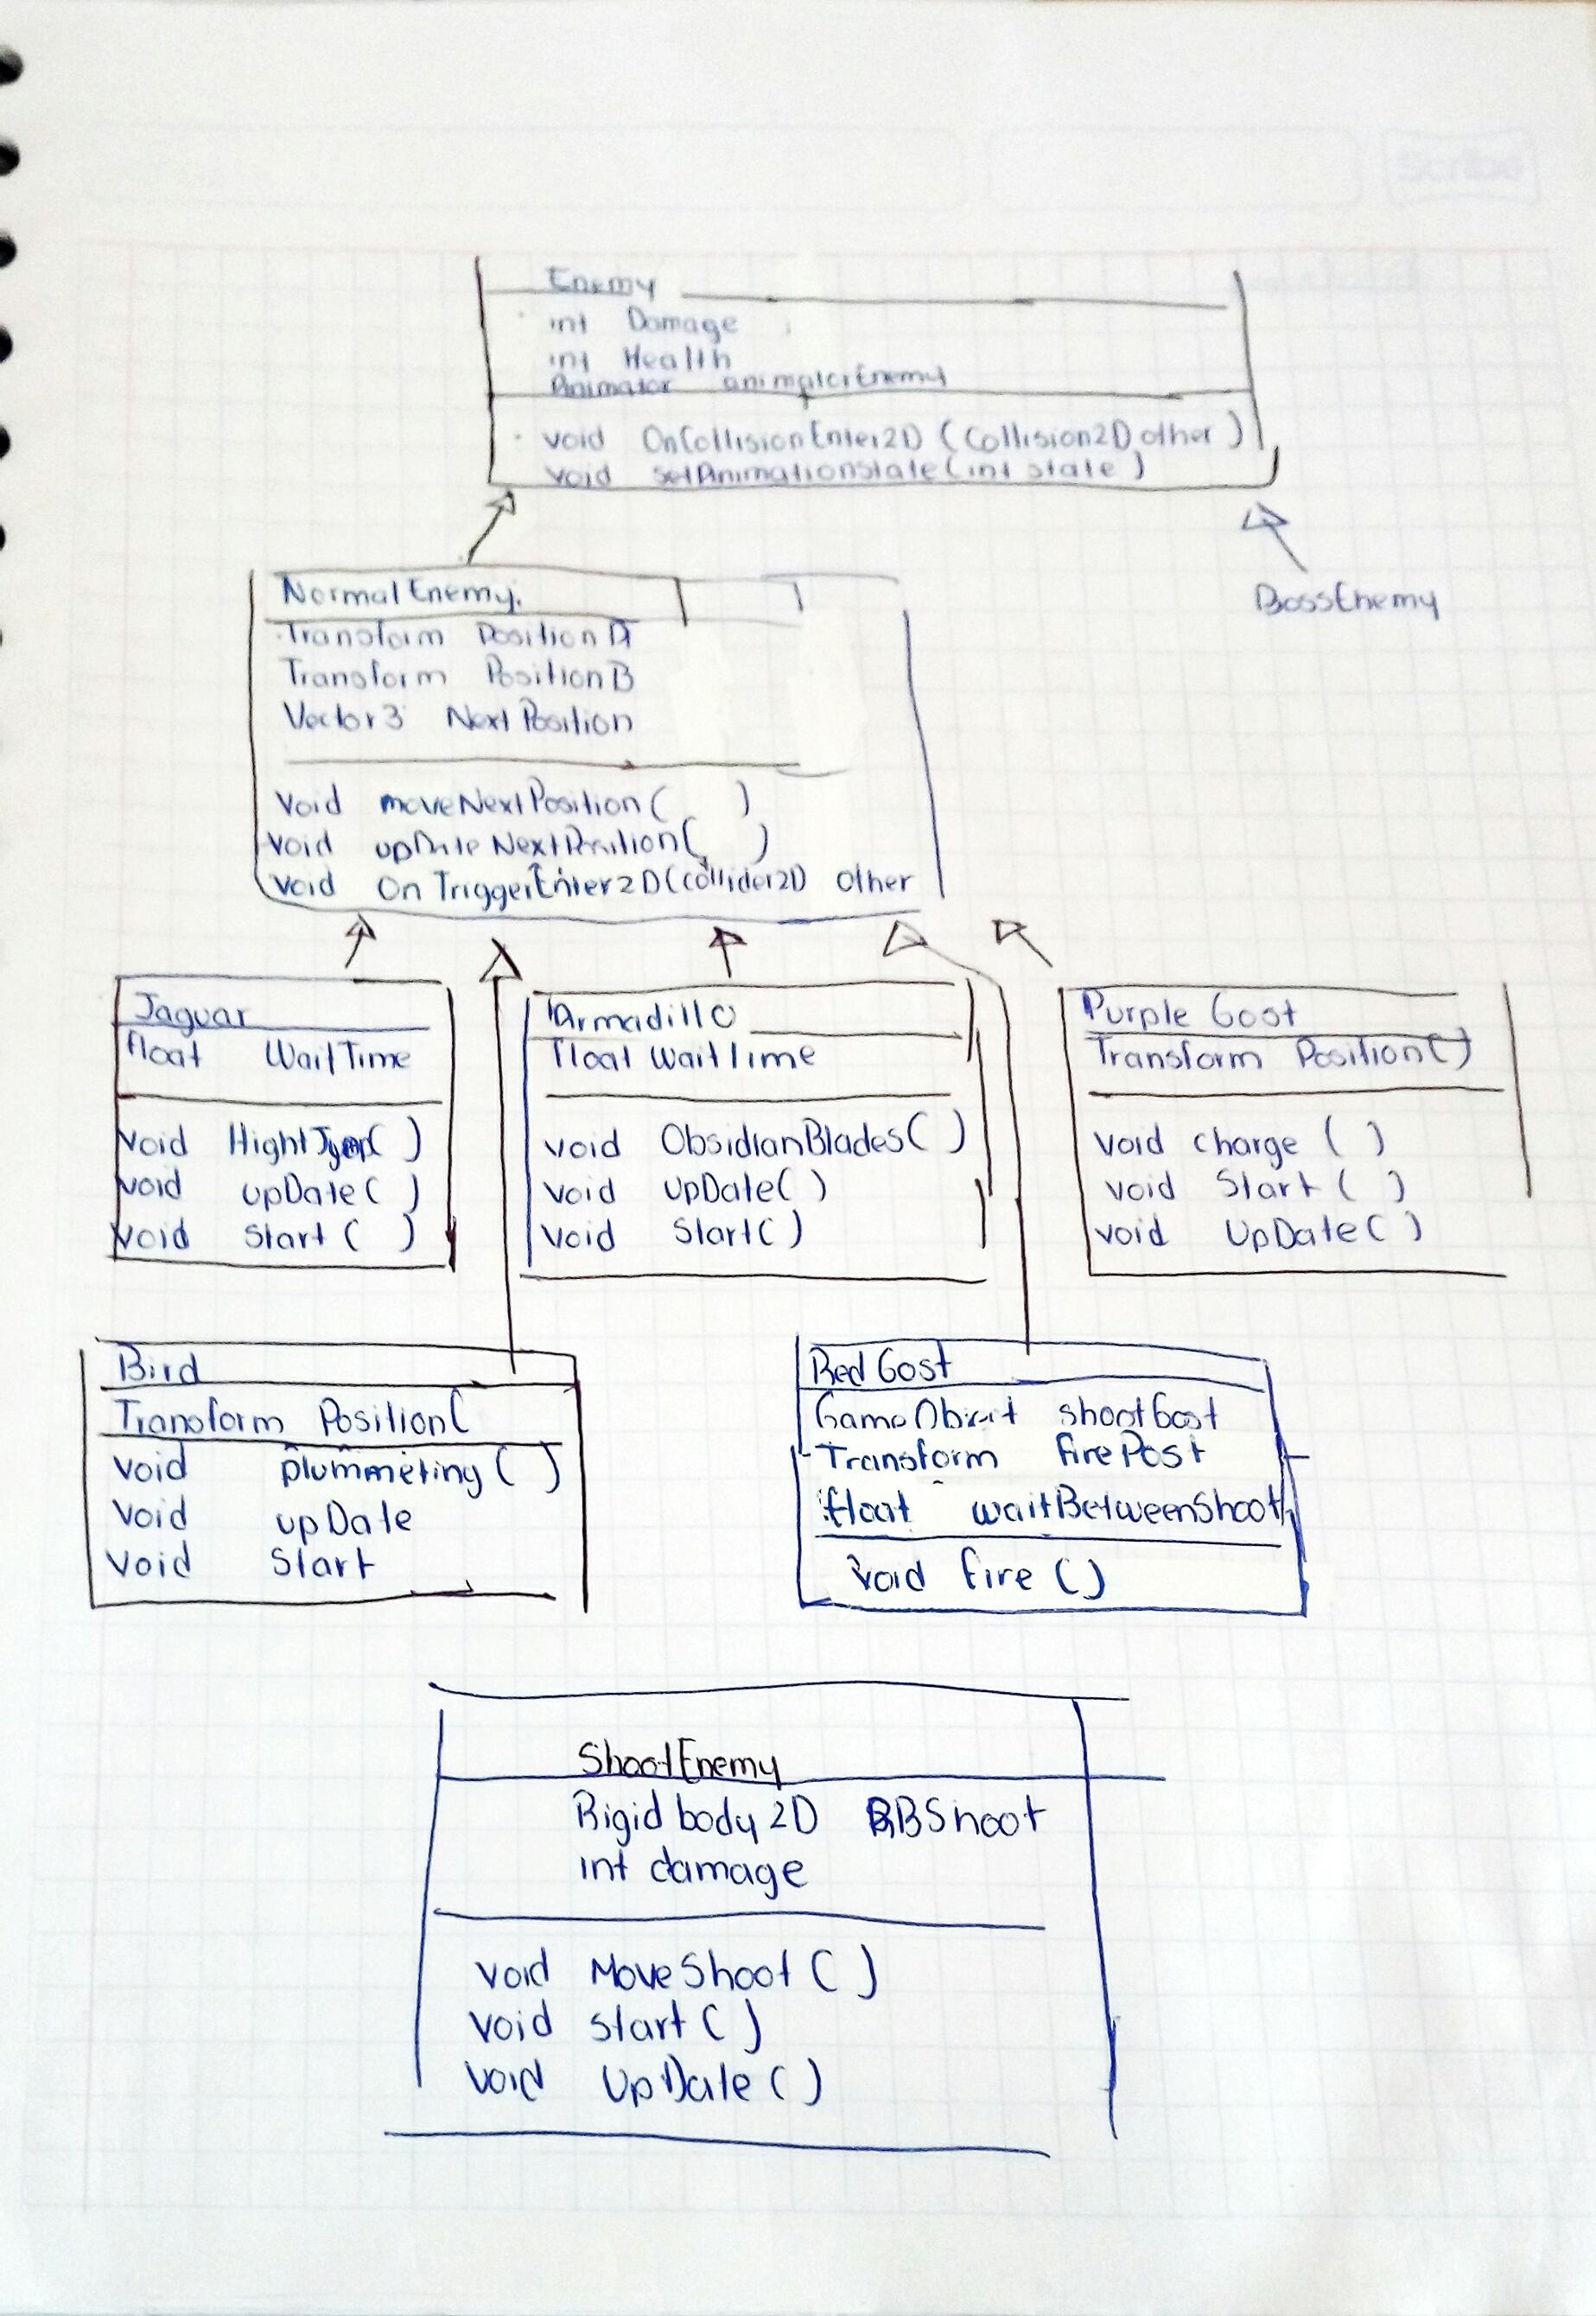 Scribe
Enemy
int Damage
int Health
Animator animatorEnemy
void OnCollisionEnter2D (Collision2D other)
void setAnimationState(int state)
NormalEnemy.
Transform PositionA
Transform PositionB
Vector3 NextPosition
Void moveNextPosition( )
void upDateNextPosition( )
void OnTriggerEnter2D(collider2D other
BossEnemy
Jaguar
float WaitTime
void HightJump( )
void upDate( )
void Start ( )
Armadillo
float waitTime
void ObsidianBlades( )
void upDate( )
void Start( )
Purple Gost
Transform Position( )
void charge ( )
void Start ( )
void UpDate( )
Bird
Transform Position(
void plummeting ( )
Void upDate
Void Start
Red Gost
GameObject shootGost
Transform firePost
float waitBetweenShoot
void fire ( )
ShootEnemy
Rigidbody2D RBShoot
int damage
void MoveShoot ( )
void start ( )
void UpDate ( )